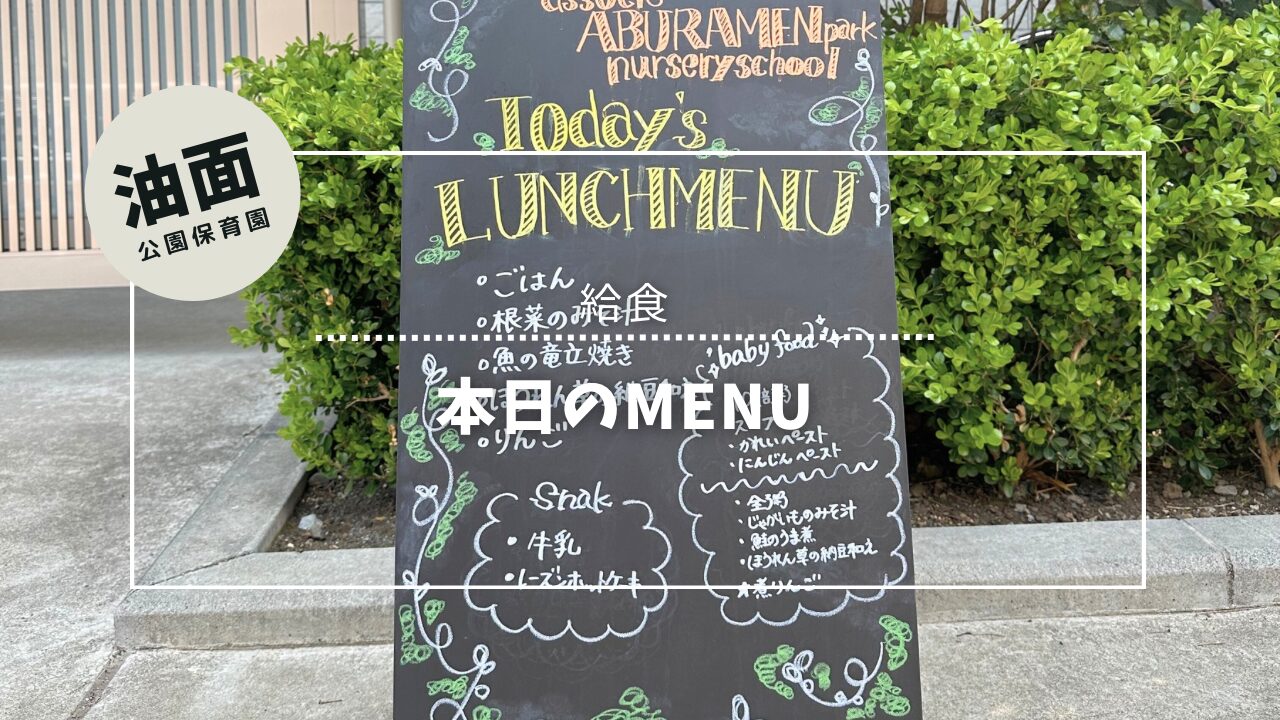 ABURAMEN park
nursery school
Today's
LUNCHMENU
油面
公園保育園
ごはん
給食
根菜のみそ汁
魚の竜立焼き
baby food
本日のMENU
りんご
かれいペースト
にんじんペースト
Snak
全粥
じゃがいものみそ汁
鮭のうま煮
ほうれん草の納豆和え
煮りんご
牛乳
レーズンホットケーキ